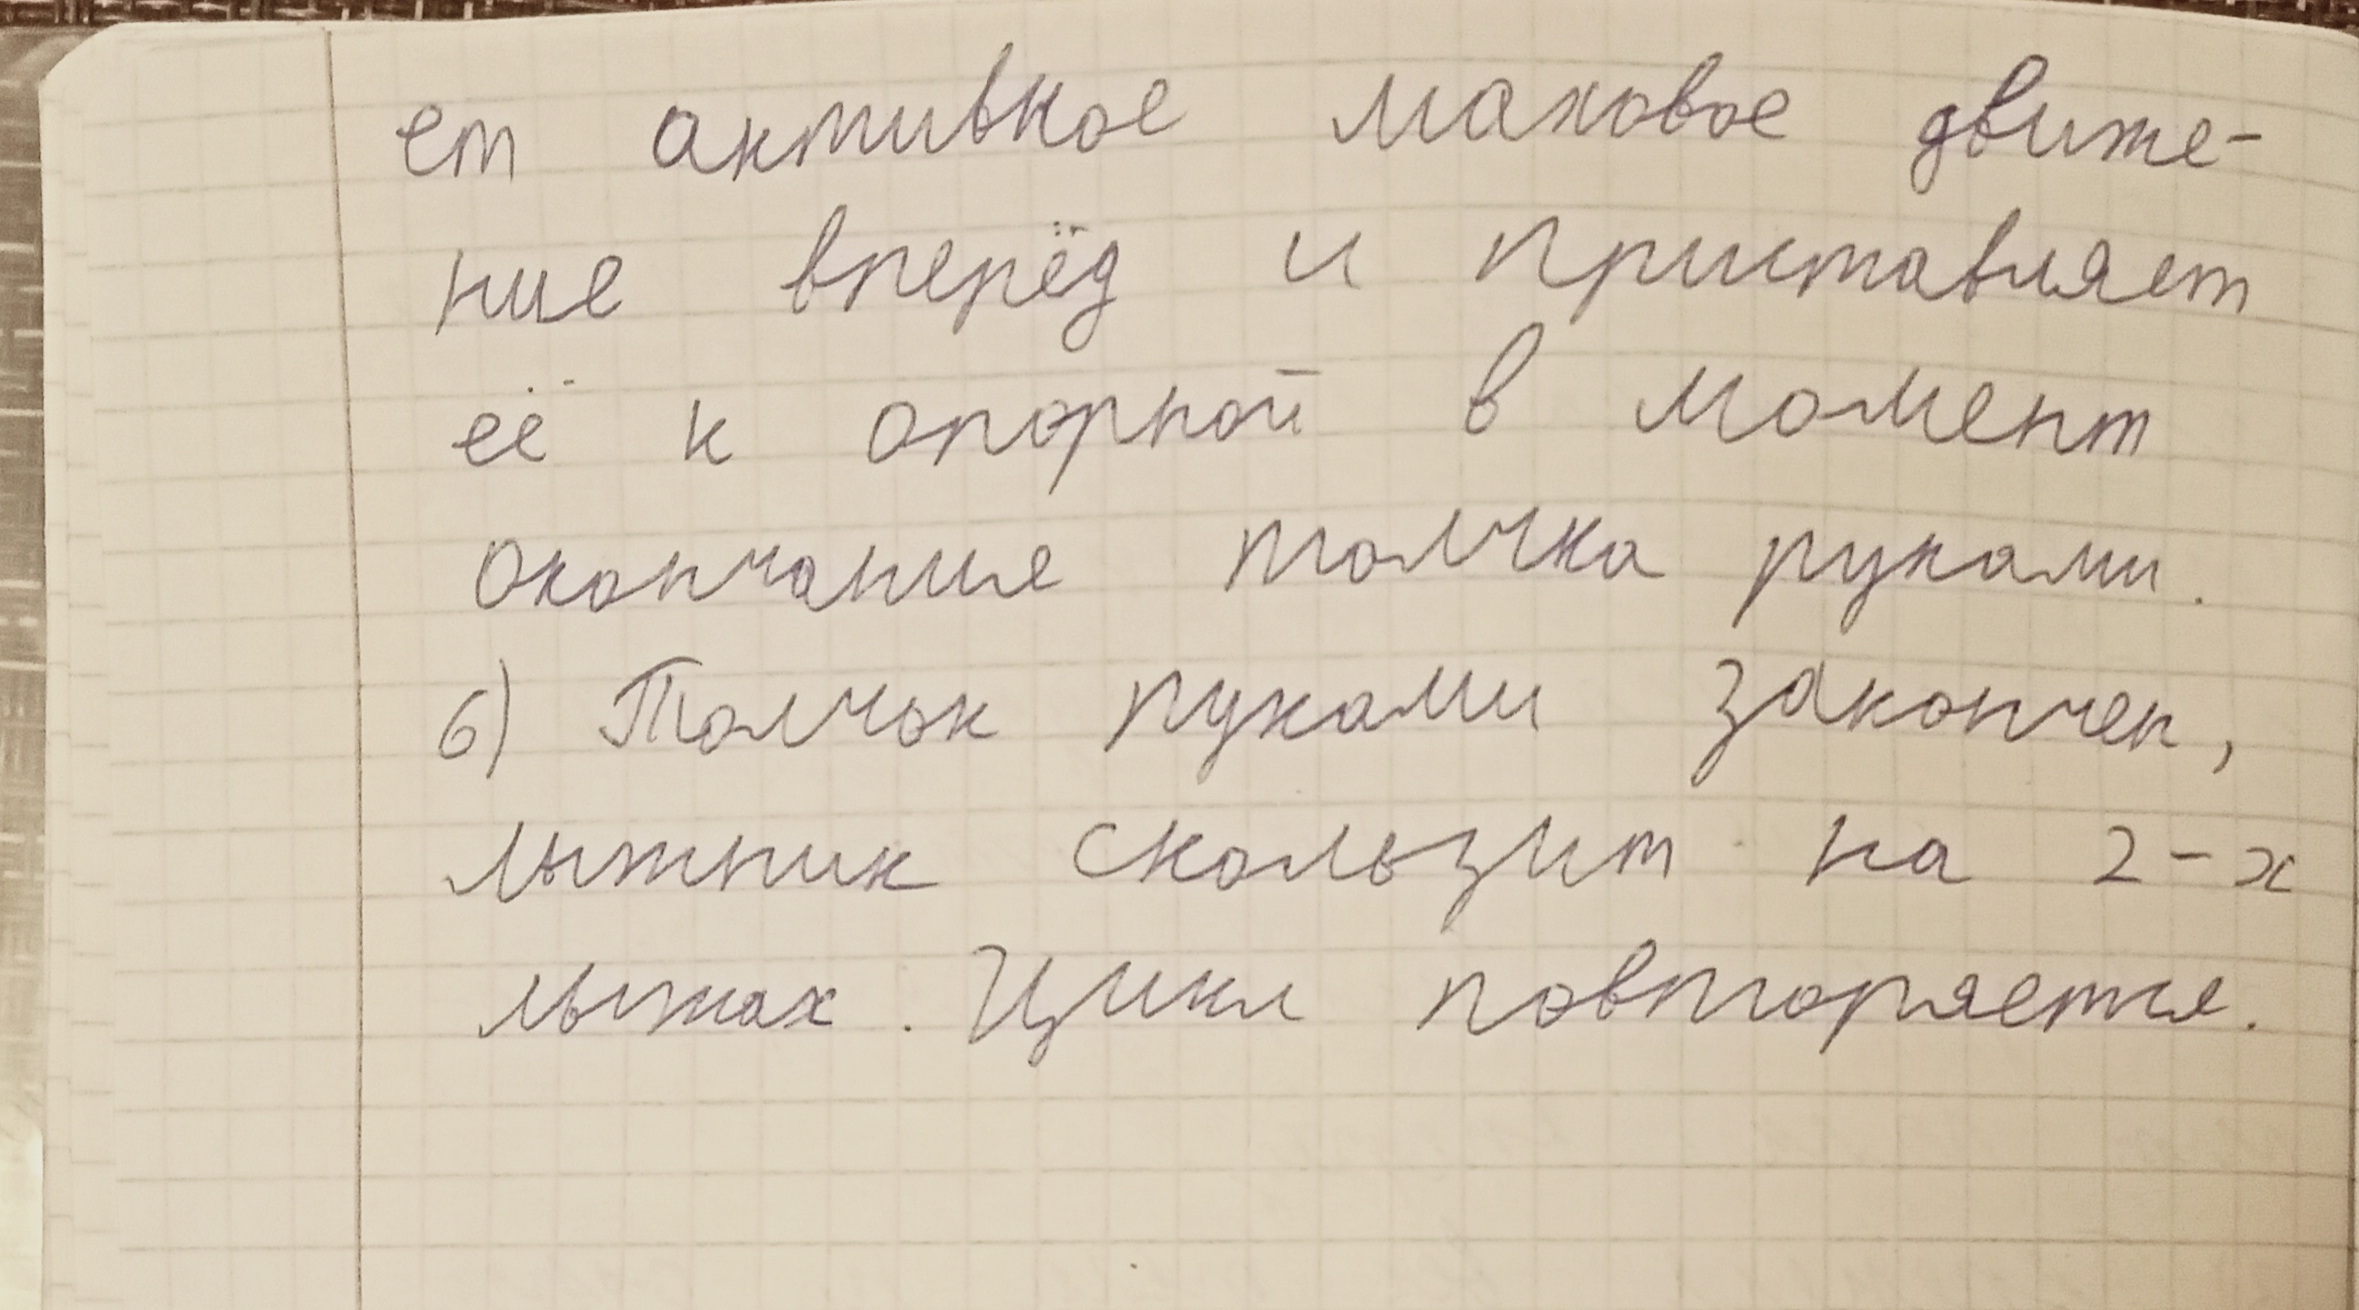 ет активное маховое движе-
ние вперёд и приставляет
её к опорной в момент
окончание толчка руками.
6) Толчок руками закончен,
лыжник скользит на 2-х
лыжах. Цикл повторяется.